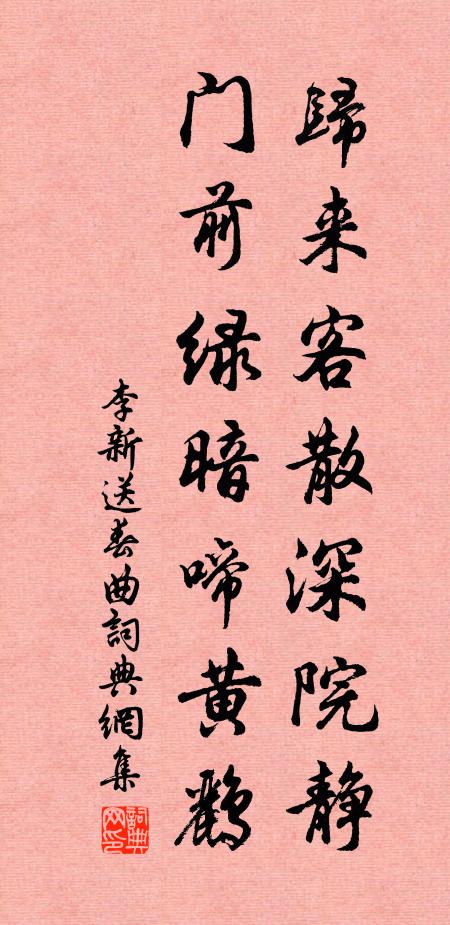 歸来客散深院静
门前绿暗啼黄鸝
李新送春曲詞典網集
詞典网印